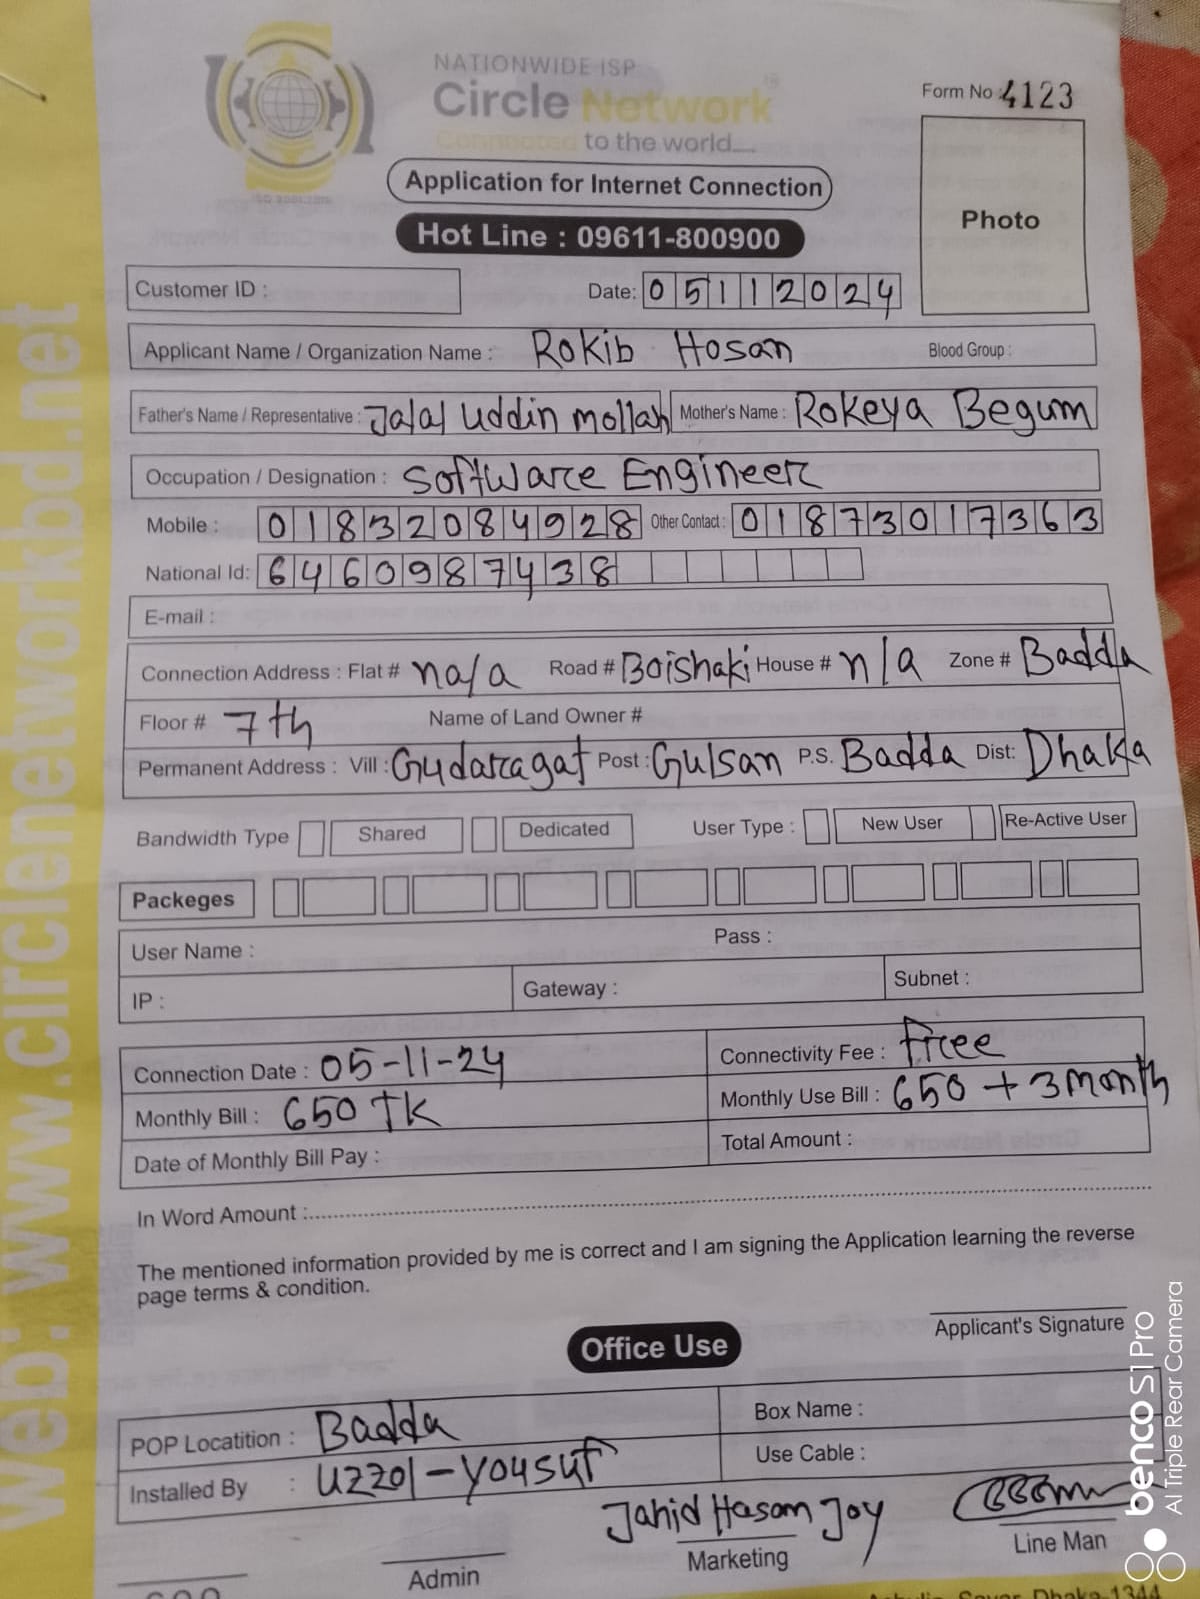 NATIONWIDE ISP
Circle Network
Connected to the world....
ISO 9001:2015
Form No : 4123
Photo
Application for Internet Connection
Hot Line : 09611-800900
Customer ID :
Date: 05112024
Applicant Name / Organization Name : Rokib Hosan Blood Group :
Father's Name / Representative : Jalal uddin mollah Mother's Name : Rokeya Begum
Occupation / Designation : Software Engineer
Mobile : 01832084928 Other Contact : 01873017363
National Id: 6460987438
E-mail :
Connection Address : Flat # na/a Road # Boishaki House # n/a Zone # Badda
Floor # 7th Name of Land Owner #
Permanent Address : Vill : Gudaragat Post : Gulsan P.S. Badda Dist: Dhaka
Bandwidth Type Shared Dedicated User Type : New User Re-Active User
Packeges
User Name : Pass :
IP : Gateway : Subnet :
Connection Date : 05-11-24 Connectivity Fee : Free
Monthly Bill : 650 TK Monthly Use Bill : 650 + 3 month
Date of Monthly Bill Pay : Total Amount :
In Word Amount :
The mentioned information provided by me is correct and I am signing the Application learning the reverse
page terms & condition.
Applicant's Signature
Office Use
POP Locatition : Badda Box Name :
Installed By : Uzzol-Yousuf Use Cable :
Jahid Hasan Joy
Admin Marketing Line Man
Dhaka-1344
web: www.circlenetworkbd.net
benco S1 Pro
AI Triple Rear Camera